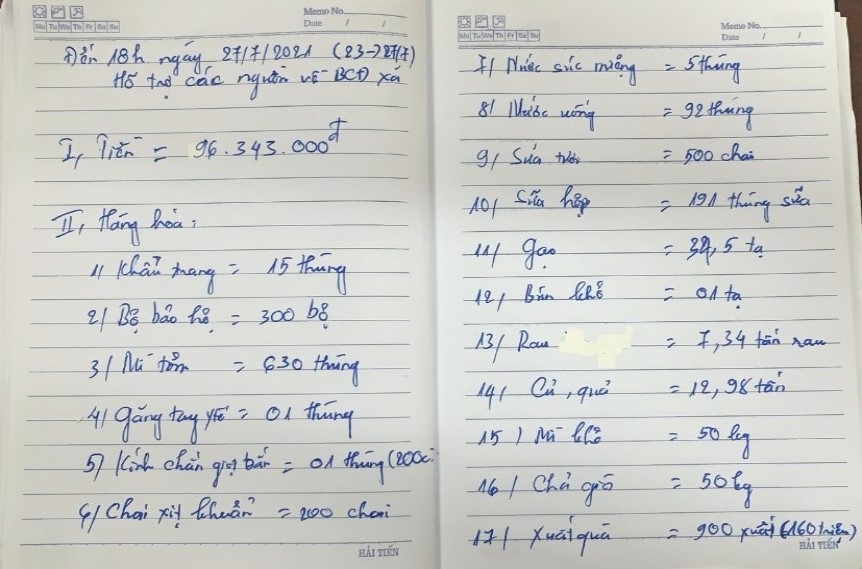 Memo No.
Date / /
Mo Tu We Th Fr Sa Su
Đến 18h ngày 27/7/2021 (23→27/7)
Hỗ trợ các nguồn về BCĐ xã
I, Tiền = 96.343.000đ
II, Hàng hóa:
1/ Khẩu trang = 15 thùng
2/ Bộ bảo hộ = 300 bộ
3/ Mì tôm = 630 thùng
4/ Găng tay ytế = 01 thùng
5/ Kính chắn giọt bắn = 01 thùng (200c
6/ Chai xịt khuẩn = 200 chai
HẢI TIẾN
Memo No.
Date / /
Mo Tu We Th Fr Sa Su
7/ Nước súc miệng = 5 thùng
8/ Nước uống = 92 thùng
9/ Sữa tươi = 500 chai
10/ Sữa hộp = 191 thùng sữa
11/ Gạo = ,5 tạ
12/ Bún khô = 01 tạ
13/ Rau = 7,34 tấn rau
14/ Củ, quả = 12,98 tấn
15/ Mì khô = 50 kg
16/ Chả giò = 50 kg
17/ Xuất quà = 900 xuất (160 triệu)
HẢI TIẾN